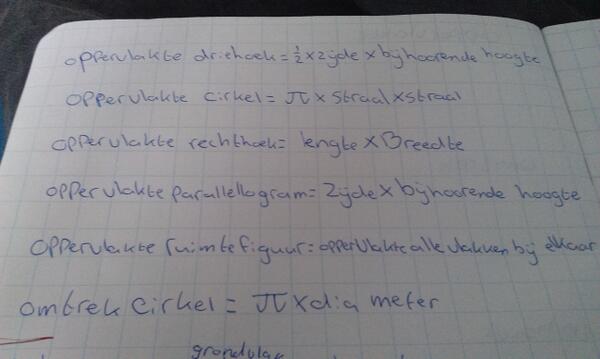 oppervlakte driehoek = ½ x zijde x bijhoorende hoogte
oppervlakte cirkel = π x straal x straal
oppervlakte rechthoek = lengte x Breedte
oppervlakte parallellogram = zijde x bijhoorende hoogte
oppervlakte ruimtefiguur = oppervlakte alle vlakken bij elkaar
omtrek cirkel = π x diameter
grondvlak